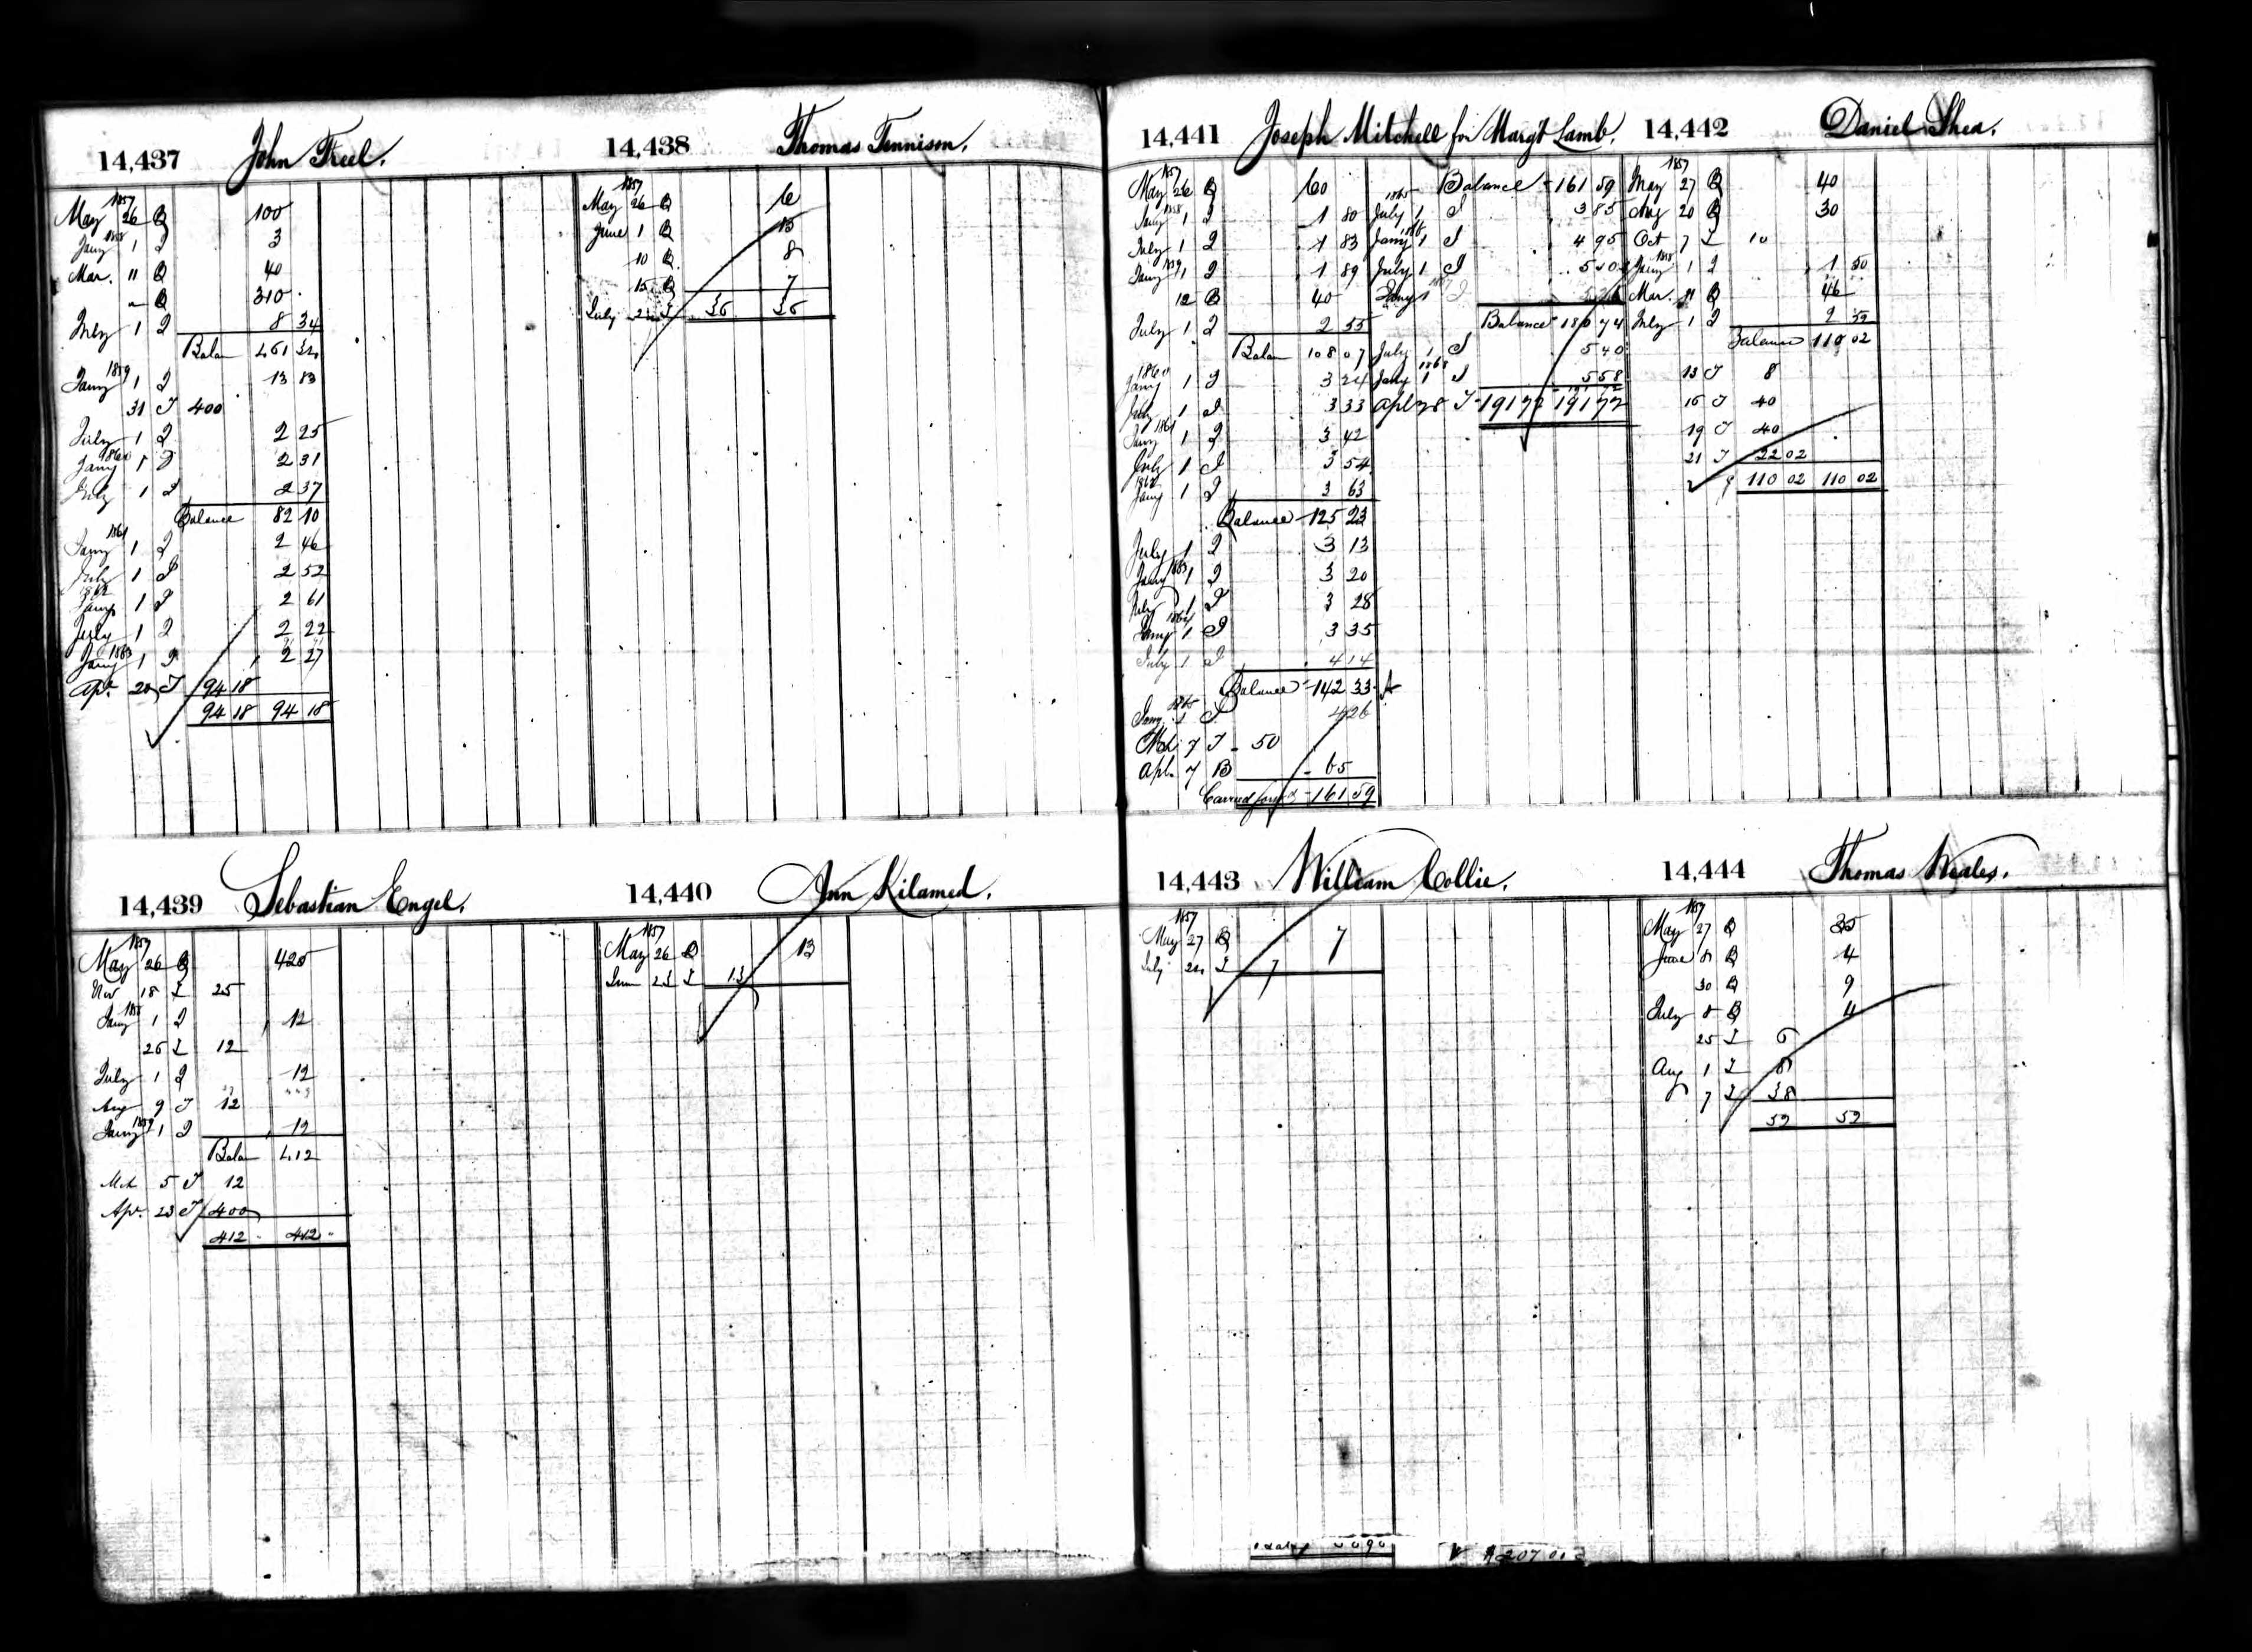 14,437 John Freel.
1857
May 26 B 100
1858
Jany 1 I 3
Mar. 11 B 40
" B 310
July 1 I 8 34
Balan 461 34
1859
Jany 1 I 13 83
31 T 400
July 1 I 2 25
1860
Jany 1 I 2 31
July 1 I 2 37
Balance 82 10
1861
Jany 1 I 2 46
July 1 I 2 52
1862
Jany 1 I 2 61
July 1 I 2 22
1863
Jany 1 I 2 27
Apr. 20 T 94 18
94 18 94 18
14,438 Thomas Tennison.
1857
May 26 B 6
June 1 B 15
10 B 8
15 B 7
July 2 T 36 36
14,439 Sebastian Engel.
1857
May 26 B 425
Nov 18 T 25
1858
Jany 1 I 12
26 T 12
July 1 I 12
Aug 9 T 12
1859
Jany 1 I 12
Balan 412
Mch 5 T 12
Apr. 23 T 400
412 412
14,440 Ann Kilamed.
1857
May 26 B 13
June 23 T 13
14,441 Joseph Mitchell for Margt Lamb.
1857
May 26 B 60
1858
Jany 1 I 1 80
July 1 I 1 83
1859
Jany 1 I 1 89
12 B 40
July 1 I 2 55
Balan 108 07
1860
Jany 1 I 3 24
July 1 I 3 33
1861
Jany 1 I 3 42
July 1 I 3 54
1862
Jany 1 I 3 63
Balance 125 23
July 1 I 3 13
1863
Jany 1 I 3 20
July 1 I 3 28
1864
Jany 1 I 3 35
July 1 I 4 14
Balance 142 33
1865
Jany 1 I 4 26
Mch 7 T 50
Apl. 7 B 65
Carried forwd 161 59
Balance 161 59
1865
July 1 I 3 85
1866
Jany 1 I 4 95
July 1 I
1867
Jany 1 I
Balance 180 74
July 1 I 5 40
1868
Jany 1 I 5 58
Apl 28 T 191 72 191 72
14,442 Daniel Shea.
1857
May 27 B 40
Aug 20 B 30
Oct 7 T 10
1858
Jany 1 I 1 50
Mar. 11 B 46
July 1 I 2 52
Balance 110 02
13 T 8
16 T 40
19 T 40
21 T 22 02
110 02 110 02
14,443 William Collie.
1857
May 27 B 7
July 20 T 7
14,444 Thomas Weales.
1857
May 27 B 35
June 8 B 4
30 B 9
July 8 B 4
25 T 6
Aug 1 T 8
7 T 38
52 52